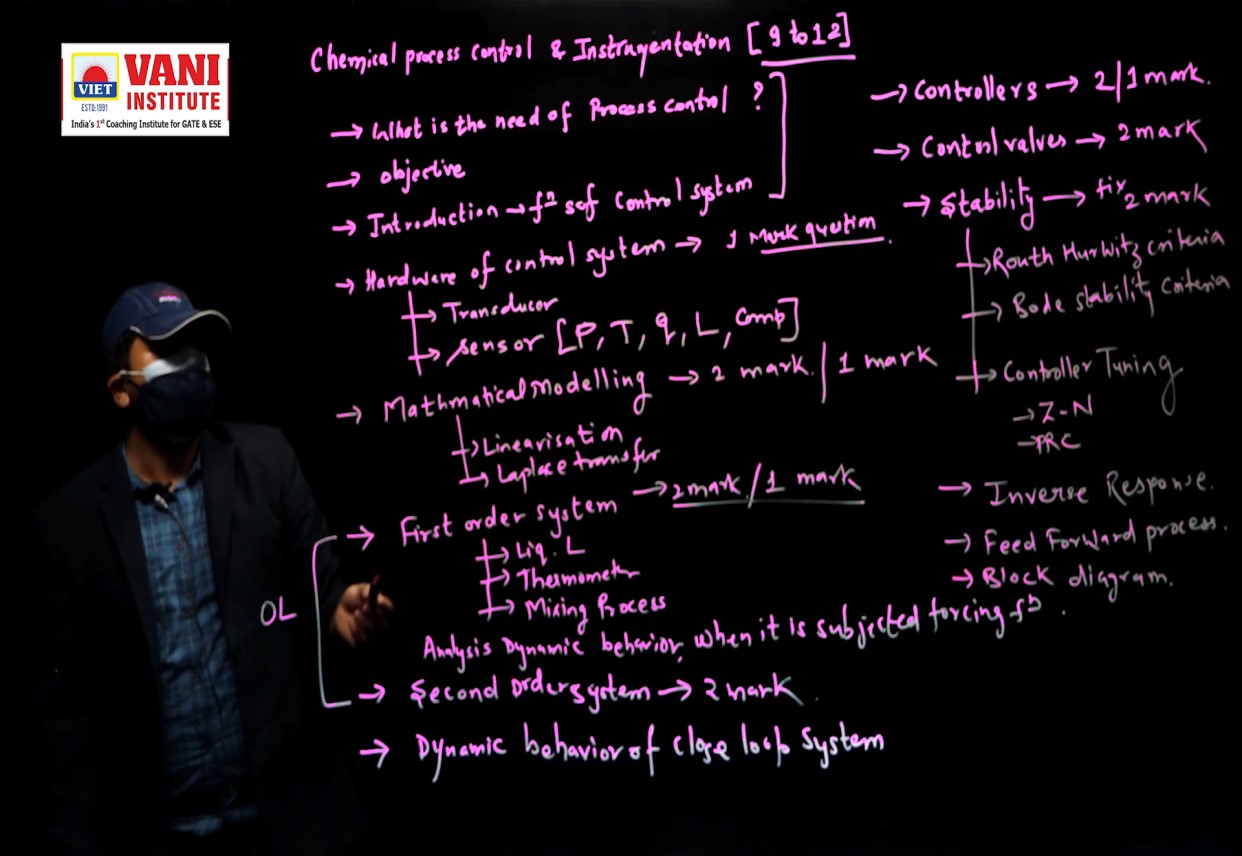 VANI
INSTITUTE
VIET
ESTD:1991
India's 1st Coaching Institute for GATE & ESE
Chemical process control & Instrumentation [9 to 12]
→ What is the need of Process control ?
→ objective
→ Introduction → fn of control system
→ Hardware of control system → 1 Mark question.
→ Transducer
→ sensor [P, T, q, L, Comp]
→ Mathmatical Modelling → 2 mark. / 1 mark
→ Linearisation
→ Laplace transfer
→ First order system → 2 mark. / 1 mark
→ Liq. L
→ Thermometer
→ Mixing Process
OL
Analysis Dynamic behavior, when it is subjected forcing fn.
→ Second order system → 2 mark.
→ Dynamic behavior of close loop system
→ Controllers → 2/1 mark.
→ Control valves → 2 mark
→ Stability → fix 2 mark
→ Routh Hurwitz criteria
→ Bode stability criteria
→ Controller Tuning
→ Z-N
→ PRC
→ Inverse Response.
→ Feed Forward process.
→ Block diagram.